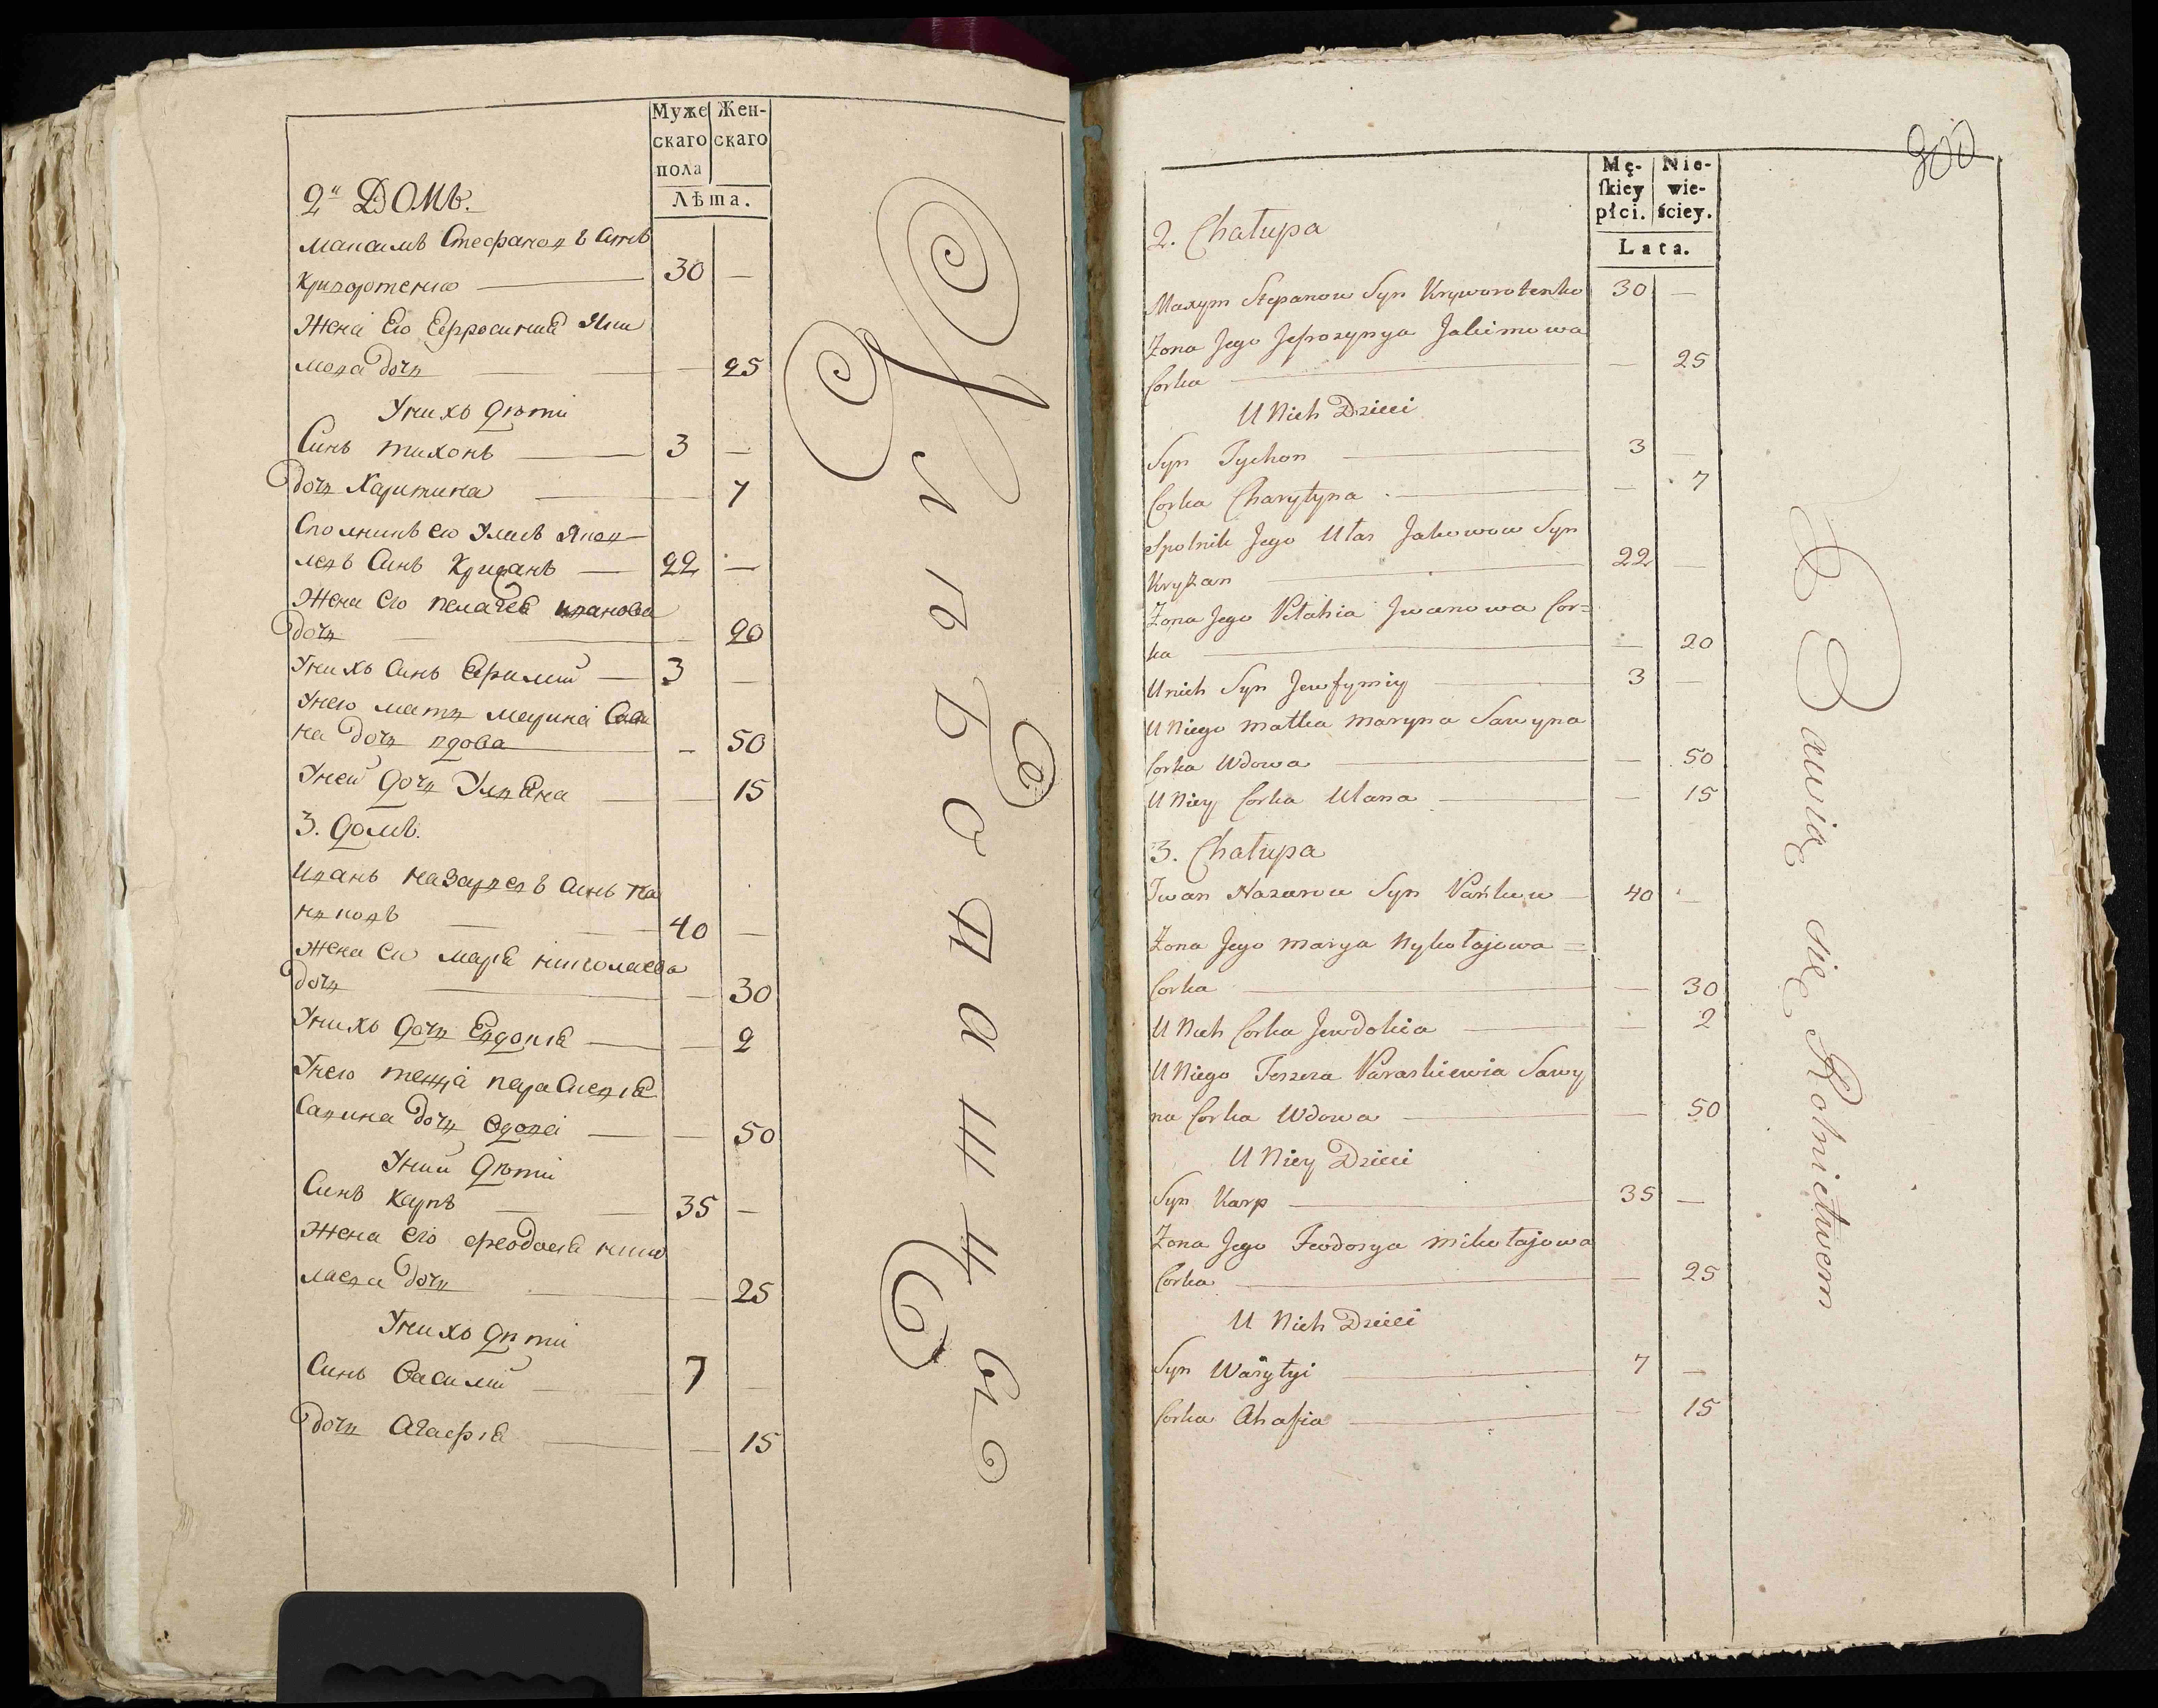 Муже Жен-
скаго скаго
пола
Лѣта.
2й Домъ.
Максимъ Стефановъ Синъ
Криворотенко — 30 —
Жена Его Ефросинія Яки
мова дочь — 25
Унихъ дѣти
Синъ Тихонъ — 3 —
дочь Харитина — 7
Сполникъ его Уласъ Яков
левъ Синъ Крижанъ — 22 —
Жена его Пелагея Иванова
дочь — 20
Унихъ Синъ Ефимій — 3 —
Унего мать Марина Сави
на дочь вдова — 50
Уней дочь Улияна — 15
3. домъ.
Иванъ Назаревъ Синъ Па
нковъ — 40 —
Жена его Марія Николаева
дочь — 30
Унихъ дочь Евдокія — 2
Унего теща Параскевія
Савина дочь вдова — 50
Уней дѣти
Синъ Карпъ — 35 —
Жена его Феодосія Нико
лаева дочь — 25
Унихъ дѣти
Синъ Василій — 7 —
дочь Агафія — 15
Хлѣбопашцы
300
Mę- Nie-
ſkiey wie-
płci. ściey.
Lata.
2. Chałupa
Maxym Stepanow Syn Kryworotenko 30 —
Żona Jego Jefrozynya Jakimowa
Corka — 25
U Nich Dzieci
Syn Tychon — 3 —
Corka Charytyna — 7
Spolnik Jego Ułas Jakowow Syn
Kryżan — 22 —
Żona Jego Pełahia Jwanowa Cor=
ka — 20
U nich Syn Jewfymiy — 3 —
U Niego matka Maryna Sawyna
Corka Wdowa — 50
U Niey Corka Ulana — 15
3. Chałupa
Iwan Nazarow Syn Pańkow — 40 —
Żona Jego Marya Nykołajowa =
Corka — 30
U Nich Corka Jewdokia — 2
U Niego Teszcza Paraskiewia Sawy
na Corka Wdowa — 50
U Niey Dzieci
Syn Karp — 35 —
Żona Jego Feodosya Mikołajowa
Corka — 25
U Nich Dzieci
Syn Wasyłyi — 7 —
Corka Ahafia — 15
Bawią się Rolnictwem